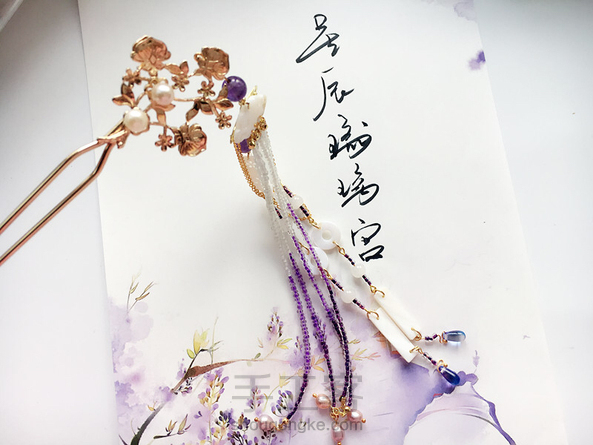 星辰琉璃宫
手工客
shougongke.com